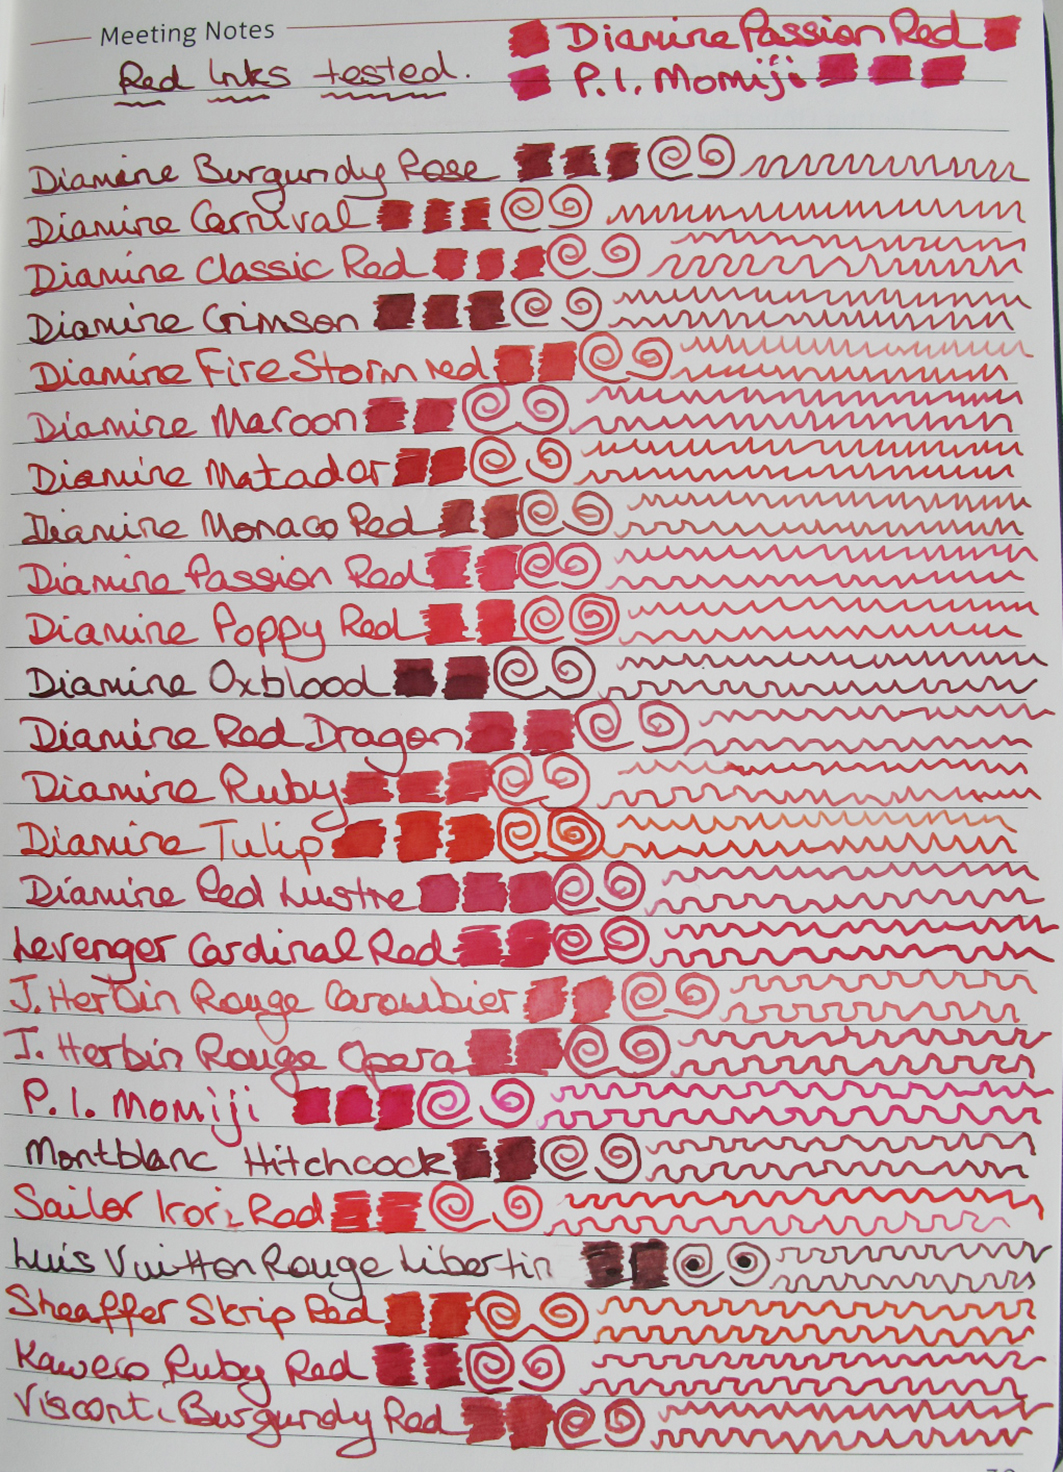 Meeting Notes
Diamine Passion Red
Red Inks tested.
P.I. Momiji
Diamine Burgundy Rose
Diamine Carnival
Diamine Classic Red
Diamine Crimson
Diamine Fire Storm red
Diamine Maroon
Diamine Matador
Diamine Monaco Red
Diamine Passion Red
Diamine Poppy Red
Diamine Oxblood
Diamine Red Dragon
Diamine Ruby
Diamine Tulip
Diamine Red Lustre
Levenger Cardinal Red
J. Herbin Rouge Caroubier
J. Herbin Rouge Opera
P.I. Momiji
Montblanc Hitchcock
Sailor Irori Red
Luis Vuitton Rouge Libertin
Sheaffer Skrip Red
Kaweco Ruby Red
Visconti Burgundy Red